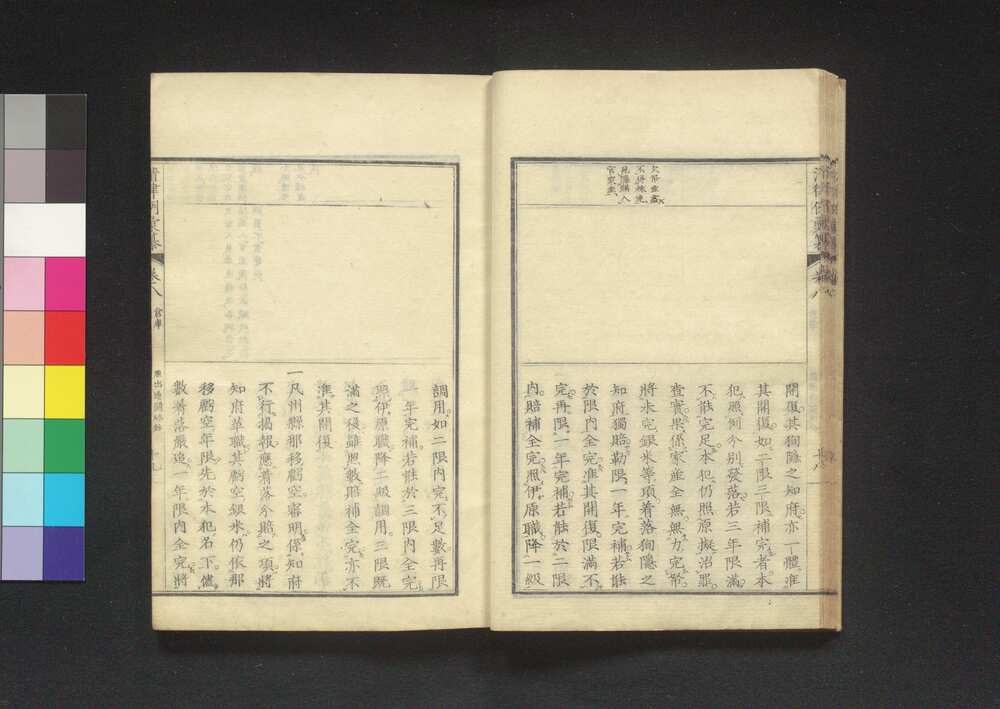 欠帑並產
不得株連
見隱瞞入
官家產
開復其徇隱之知府亦一體准
其開復如二限三限補完者本
犯照例分別發落若三年限滿
不能完足本犯仍照原擬治罪
查實果係家產全無無力完帑
將未完銀米等項着落徇隱之
知府獨賠勒限一年完補若能
於限內全完准其開復限滿不
完再限一年完補若能於二限
內賠補全完照伊原職降一級
調用如二限內完不足數再限
一年完補若能於三限內全完
照伊原職降二級調用三限既
滿之後雖照數賠補全完亦不
准其開復
一凡州縣那移虧空審明係知府
不行揭報應着落分賠之項將
知府革職其虧空銀米仍依那
移虧空年限先於本犯名下催
數着落嚴追一年限內全完將
清律例彙纂 卷八 倉庫